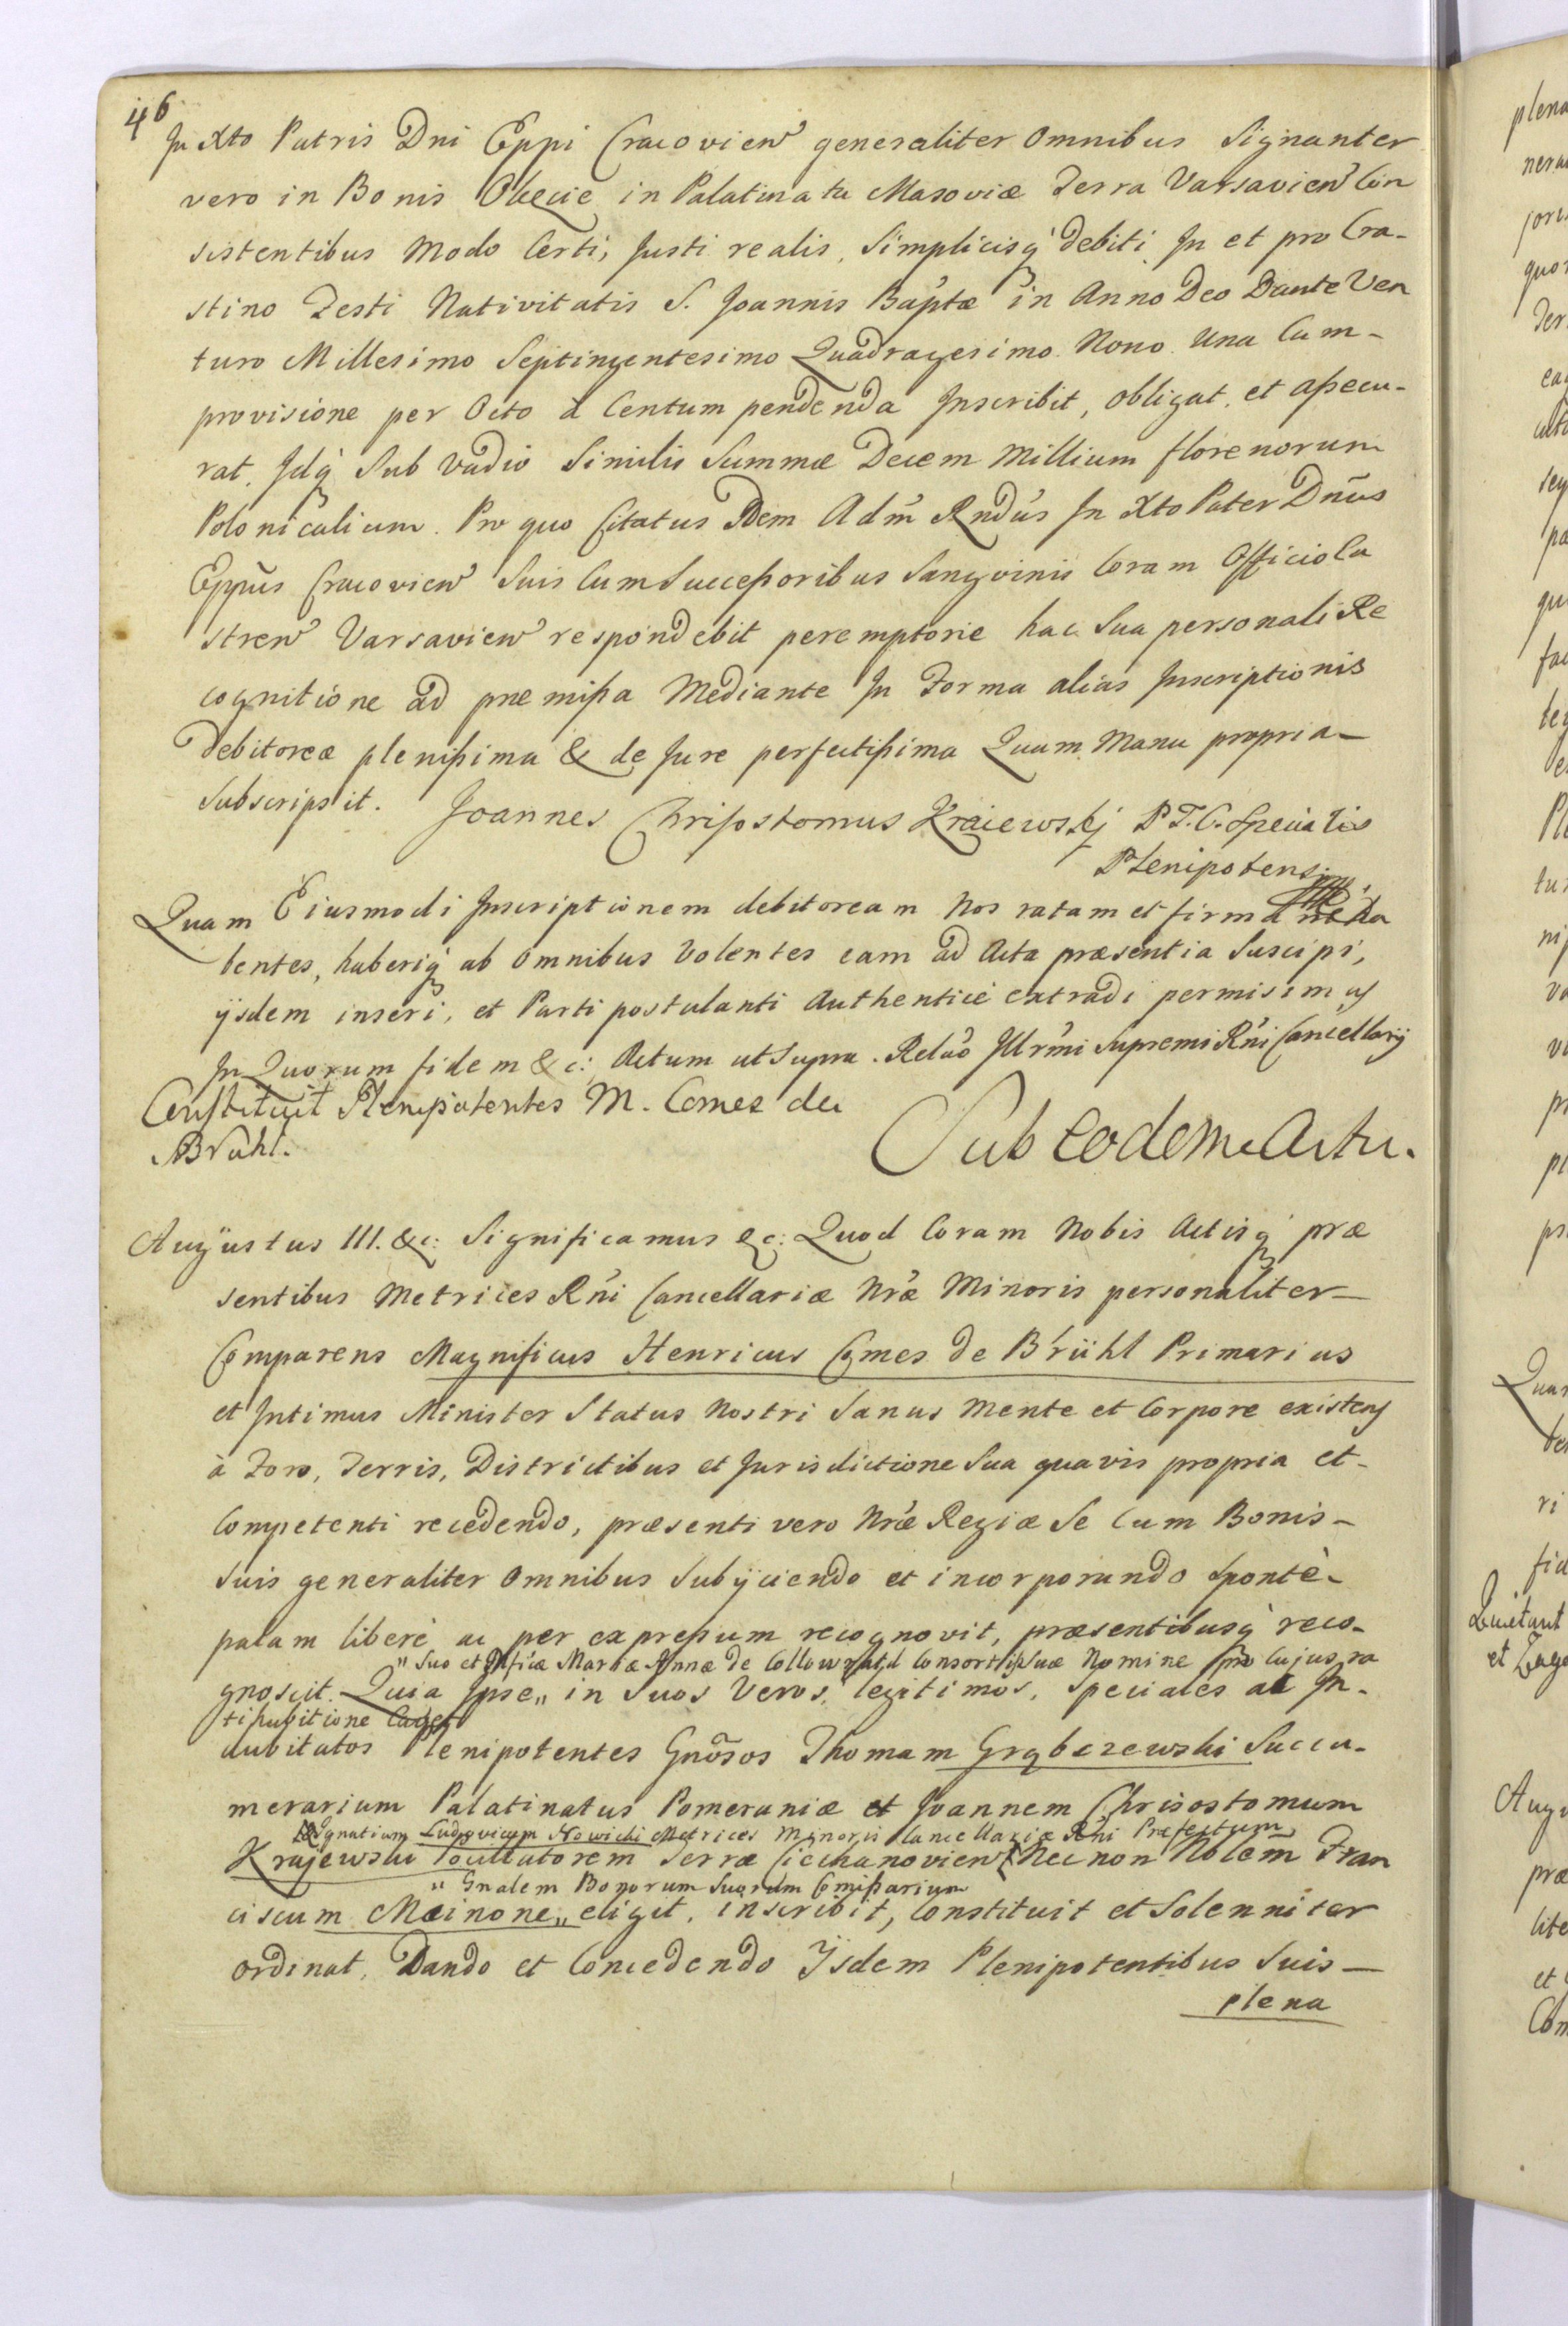 46
In Xto Patris Dni Eppi Cracovien generaliter omnibus Signanter
vero in Bonis in Palatinatu Masoviæ Terra Varsavien Con
sistentibus Modo Certi, Justi realis, Simplicisq debiti In et pro Cra-
stino Festi Nativitatis S. Joannis Baptæ in Anno Deo Dante Ven
turo Millesimo Septingentesimo Quadragesimo Nono Una Cum-
provisione per Octo à Centum pendenda Inscribit, obligat, et assecu-
rat, Idq Sub Vadio Similis Summæ Decem Millium florenorum
Polonicalium. Pro quo Citatus Idem Adm Rndus In Xto Pater Dnus
Eppus Cracovien Suis Cum Successoribus Sangvinis Coram Officio Ca
stren Varsavien respondebit peremptorie hac Sua personali Re
cognitione ad præmissa Mediante In Forma alias Inscriptionis
debitoreæ plenissima & de Jure perfectissima Quam Manu propria-
Subscripsit. Joannes Chrisostomus Kraiewskj P.T.C. Specialis
Plenipotens.
Quam Eiusmodi Inscriptionem debitoream Nos ratam et firma ha
bentes, haberiq ab omnibus Volentes eam ad Acta præsentia Suscipi,
ijsdem inseri, et Parti postulanti Authenticè extradi permisimus
In Quorum fidem &c: Actum ut Supra. Relão Illrmi Supremi Rni Cancellarij
Constituit Plenipotentes M. Comes de
Brühl.
Sub eodem Actu.
Augustus III. &c: Significamus &c: Quod Coram Nobis Actisq præ
sentibus Metrices Rni Cancellariæ Nræ Minoris personaliter-
Comparens Magnificus Henricus Comes de Brühl Primarius
et Intimus Minister Status Nostri Sanus Mente et Corpore existens
à Foro, Terris, Districtibus et Jurisdictione Sua quavis propria et-
Competenti recedendo, præsenti vero Nræ Regiæ Se Cum Bonis-
Suis generaliter omnibus Subijciendo et incorporando Spontè-
palam liberè ac per expressum recognovit, præsentibusq reco-
" Suo et Mficæ Mariæ Annæ de Collowrath Consortis Suæ Nomine pro Cujus ra
gnoscit. Quia Ipse " in Suos Veros, legitimos, Speciales ac In-
tihabitione Cavet
dubitatos Plenipotentes Gnosos Thomam Grąbczewski Succa-
merarium Palatinatus Pomeraniæ et Joannem Chrisostomum
Ignatium Ludovicum Nowicki Metrices Minoris Cancellariæ Rni Præfectum,
Krajewski Pocillatorem Terræ Ciechanovien Nec non Nblem Fran
" Gnalem Bonorum Suorum Comissarium
ciscum Meinone " eligit, inscribit, Constituit et Solenniter
ordinat, Dando et Concedendo Ijsdem Plenipotentibus Suis-
plena